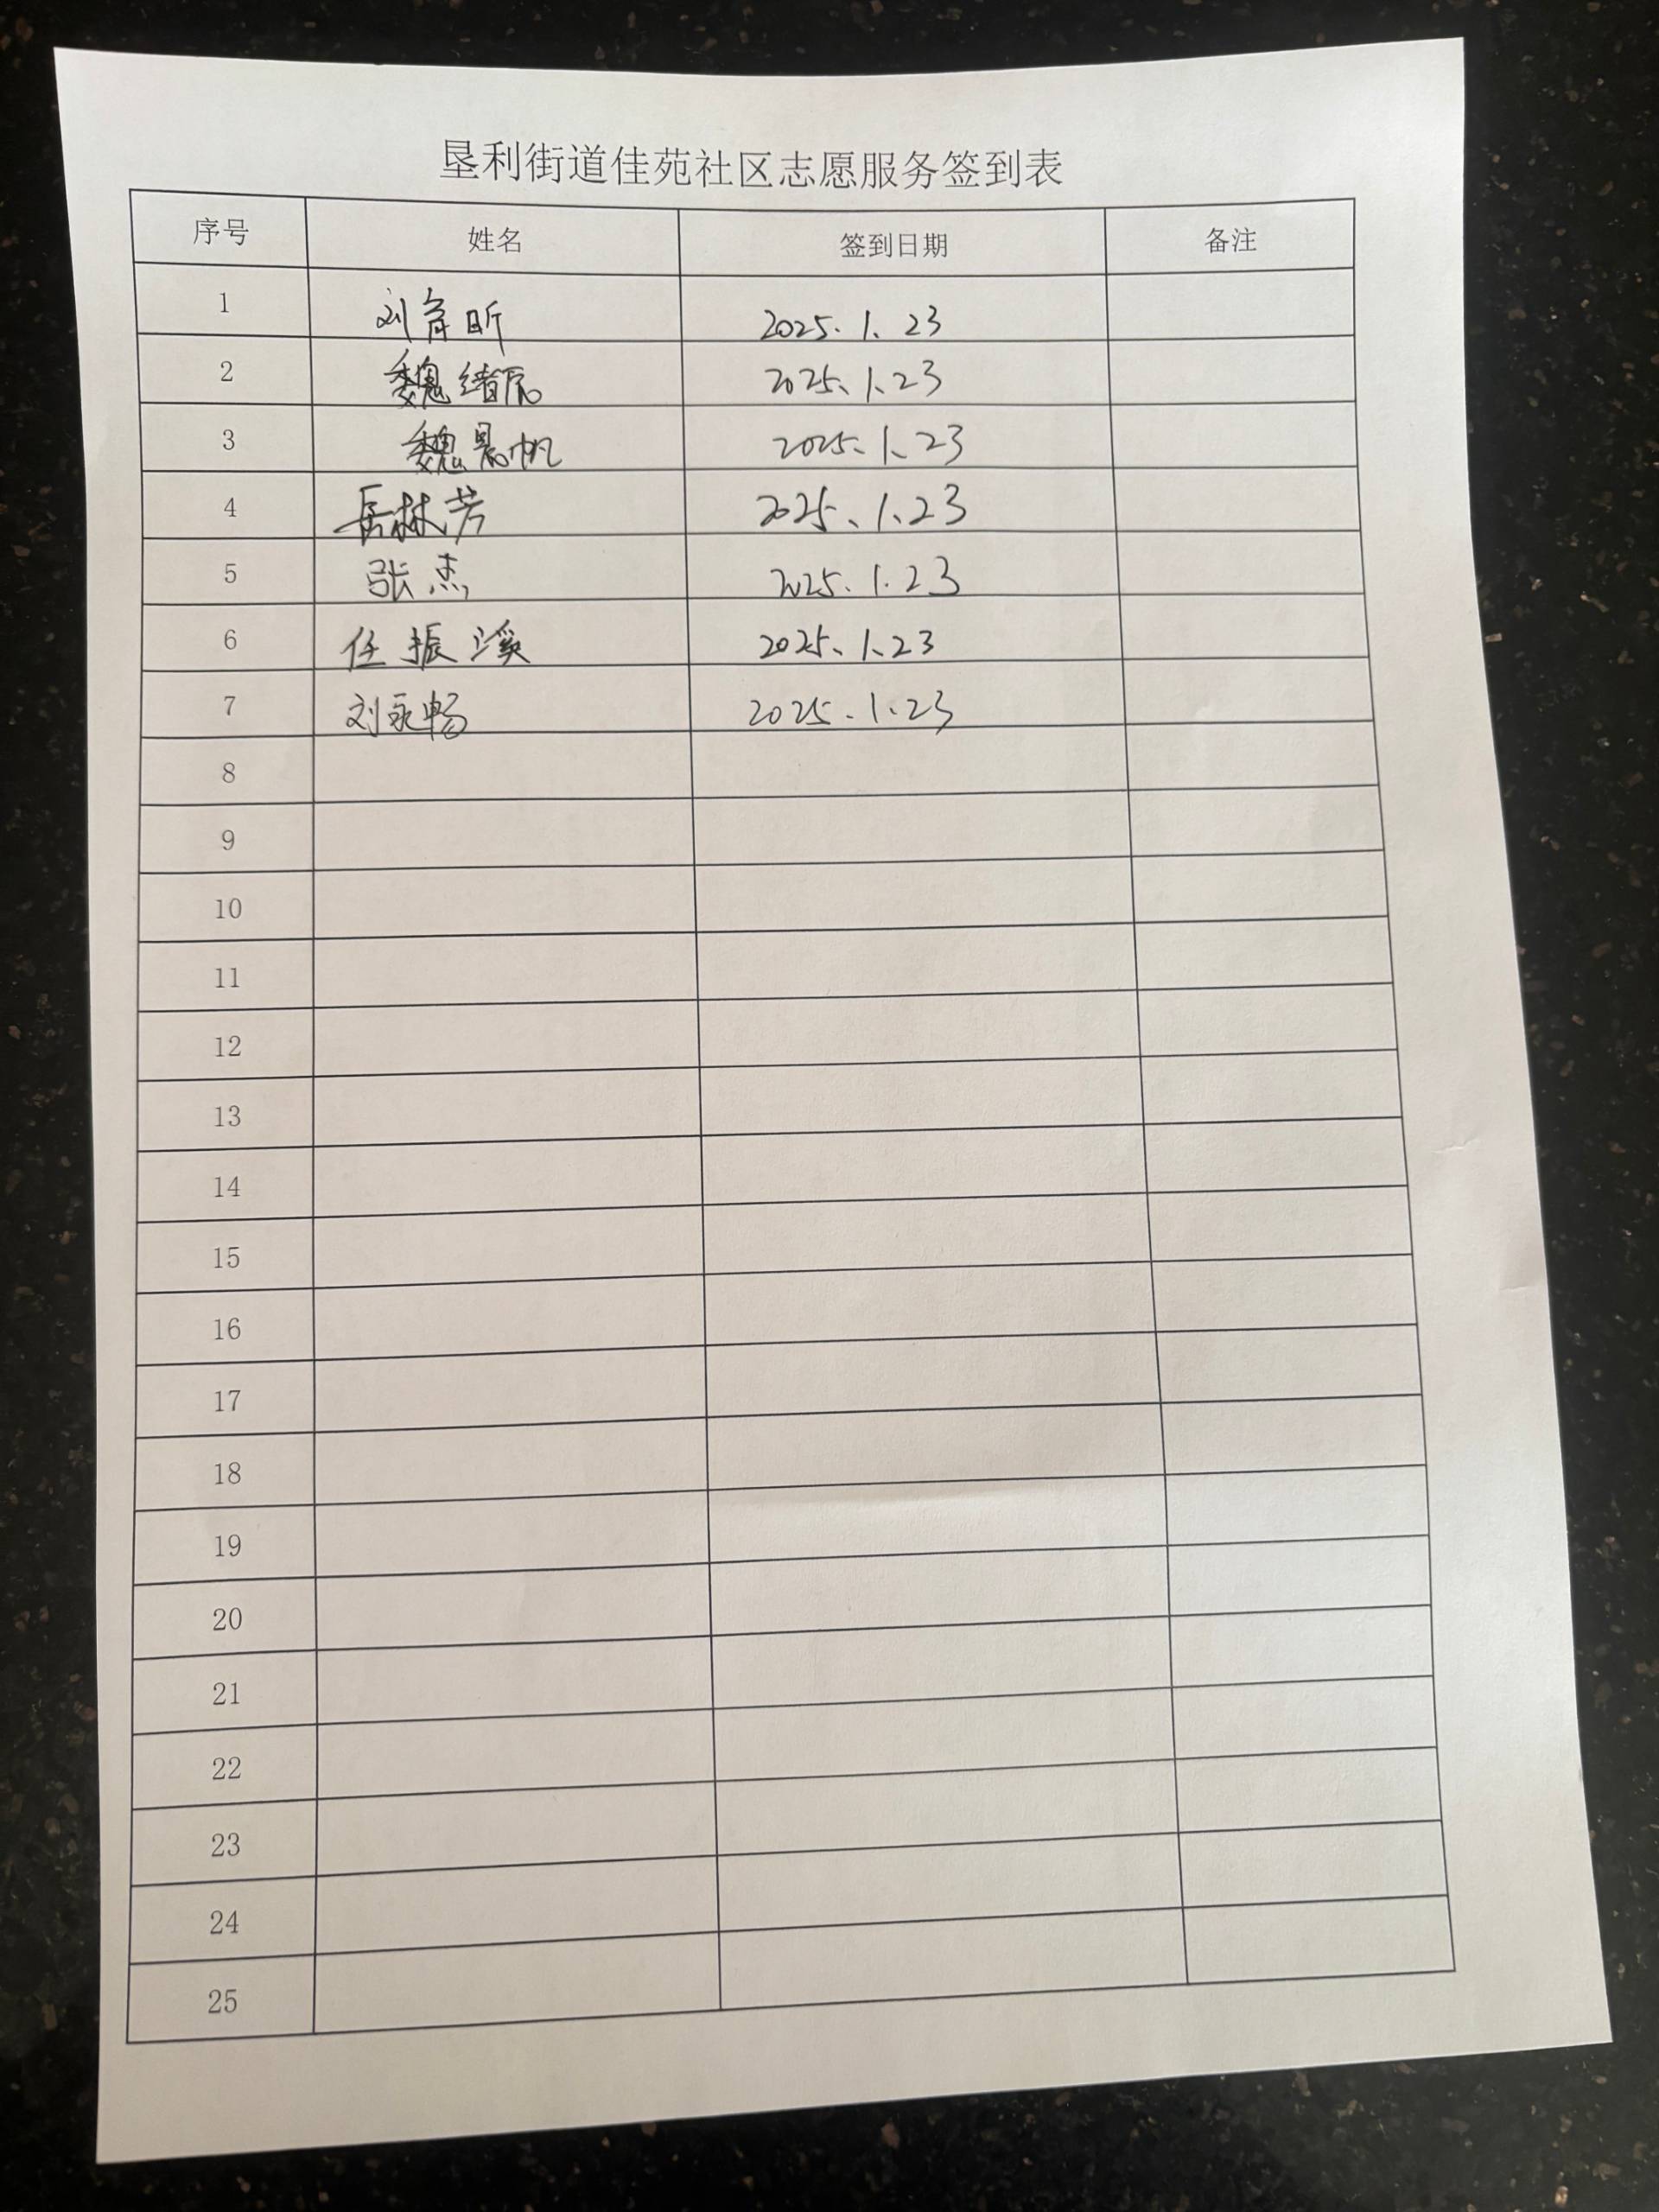 垦利街道佳苑社区志愿服务签到表
序号 姓名 签到日期 备注
1 刘育昕 2025.1.23
2 魏绪 2025.1.23
3 魏晨帆 2025.1.23
4 岳林芳 2025.1.23
5 张杰 2025.1.23
6 任振溪 2025.1.23
7 刘永畅 2025.1.23
8
9
10
11
12
13
14
15
16
17
18
19
20
21
22
23
24
25